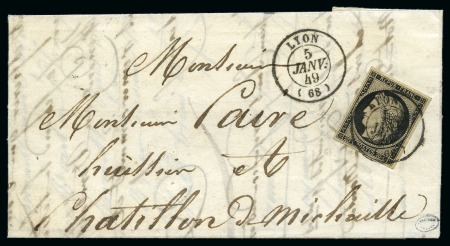 LYON
5
JANV.
49
(68)
Monsieur
Monsieur Paire
huissier et
Chatillon de Michaille
LYON